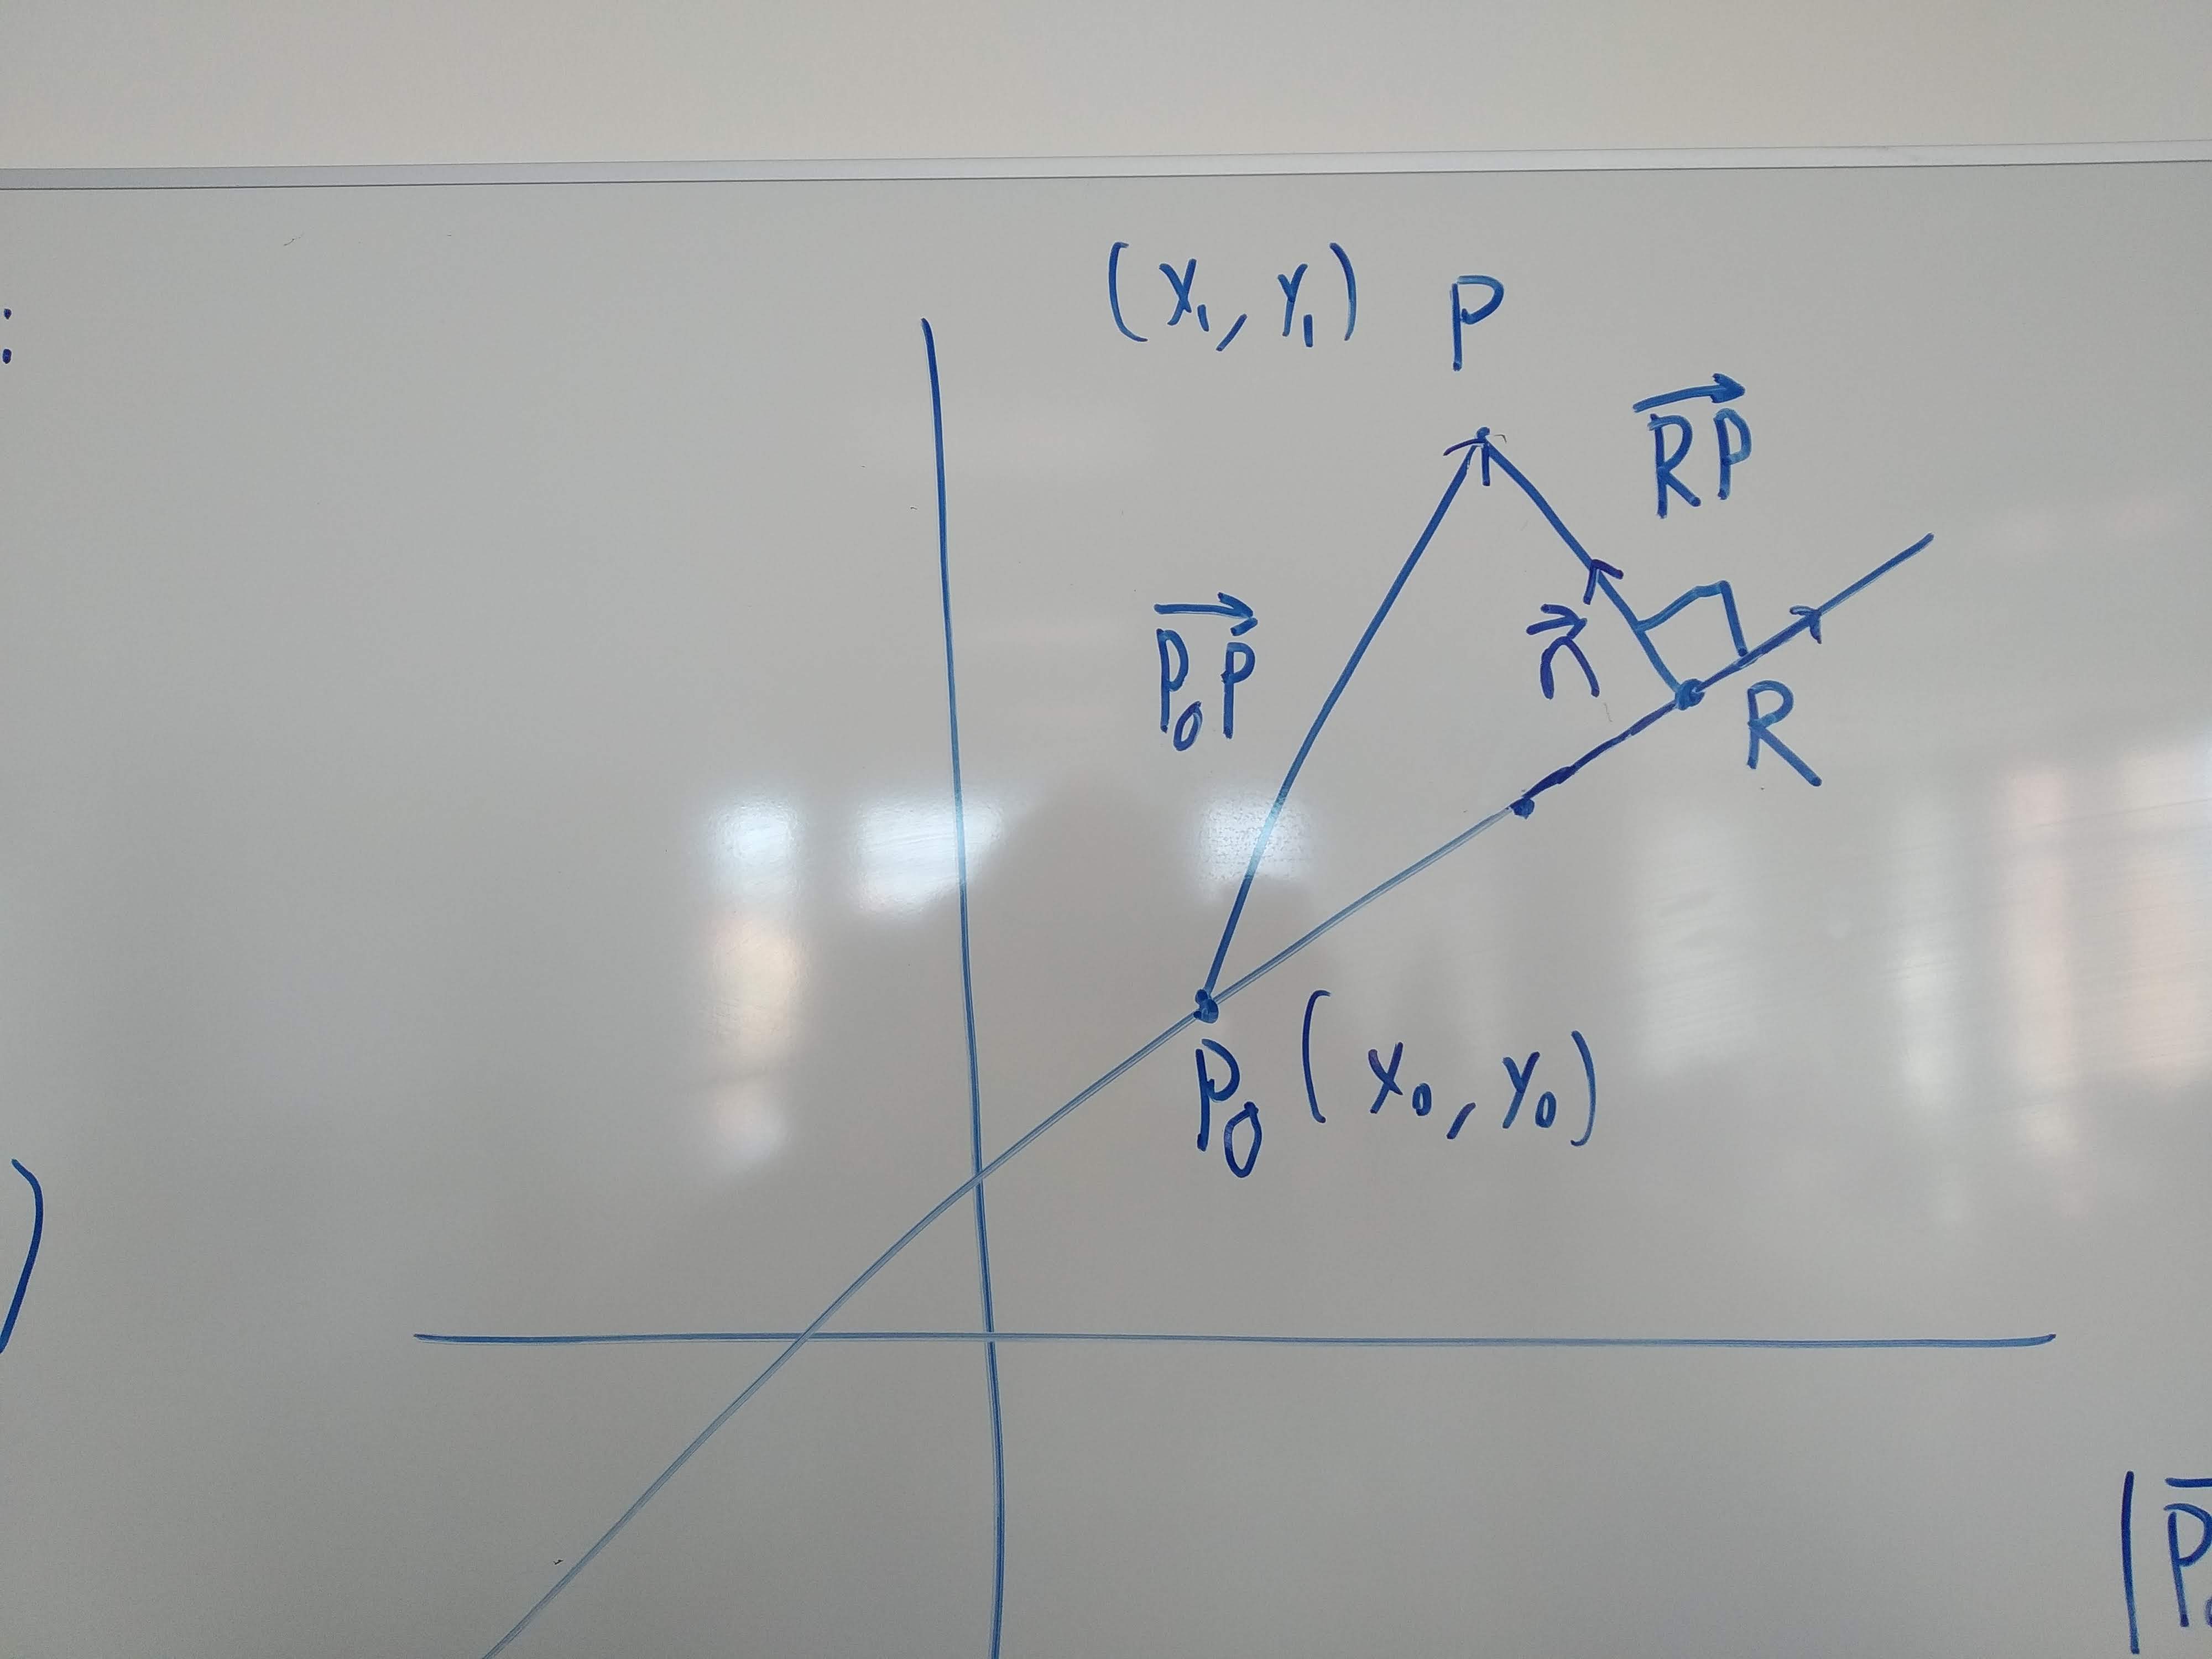 :
(x₁, y₁) P
$\overrightarrow{RP}$
$\overrightarrow{P_0P}$
$\vec{n}$
R
P₀ (x₀, y₀)
)